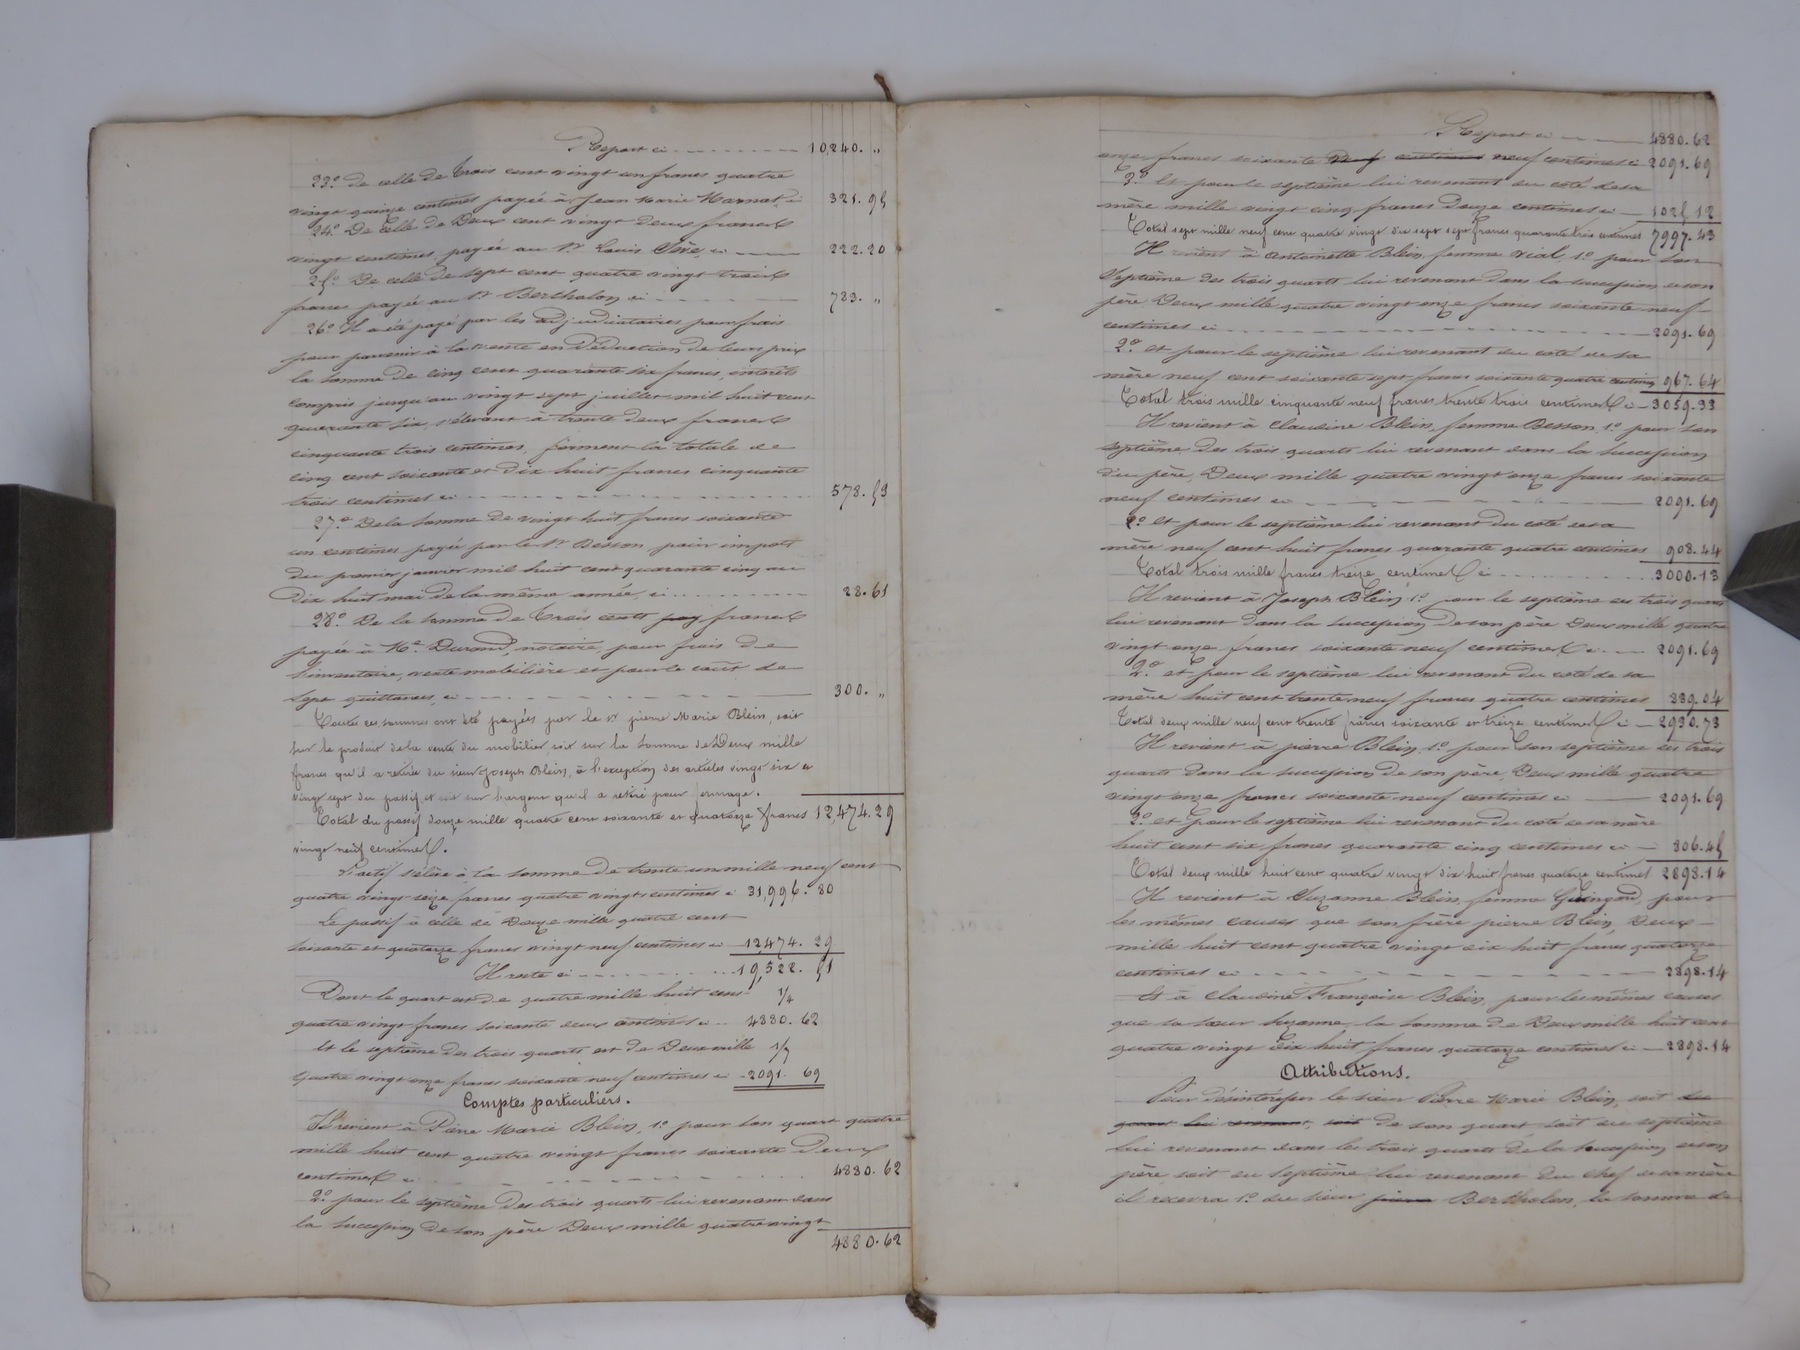 Report ci 10,240. "
23.° de celle de trois cent vingt un francs quatre
vingt quinze centimes payée à Jean Marie Marnat, ci 321. 95
24.° De celle de Deux cent vingt deux francs
vingt centimes, payée au Sr Louis Sève, ci 222.20
25.° De celle de sept cent quatre vingt trois
francs payée au Sr Bertholon ci 783. "
26.° Il a été payé par les adjudicataires pour frais
pour parvenir à la vente en Déduction de leurs prix
la somme de cinq cent quarante six francs, intérêts
compris jusqu'au vingt sept juillet mil huit cent
quarante six, s'élevant à trente deux francs
cinquante trois centimes, forment la totale de
cinq cent soixante et dix huit francs cinquante
trois centimes ci 578. 53
27.° De la somme de vingt huit francs soixante
un centimes payée par le Sr Besson, pour impots
du premier janvier mil huit cent quarante cinq au
dix huit mai de la même année, ci 28.61
28.° De la somme de Trois cents francs
payée à Me Durand, notaire, pour frais de
l'inventaire, vente mobilière et pour le coût de
sept quittances, ci 300. "
Toutes ces sommes ont été payées par le sr pierre Marie Blein, soit
sur le produit de la vente du mobilier, soit sur la somme de Deux mille
francs qu'il a retirée du sieur Joseph Blein, à l'exception des articles vingt six et
vingt sept du passif, et soit sur l'argent qu'il a retiré pour fermage.
Total du passif douze mille quatre cent soixante et quatorze francs 12,474.29
vingt neuf centimes.
L'actif s'élève à la somme de trente un mille neuf cent
quatre vingt seize francs quatre vingts centimes ci 31,996. 80
Le passif à celle de Douze mille quatre cent
soixante et quatorze francs vingt neuf centimes ci 12,474. 29
Il reste ci 19,522. 51
Dont le quart est de quatre mille huit cent 1/4
quatre vingt francs soixante deux centimes ci 4880. 62
Et le septième des trois quarts est de Deux mille 1/7
quatre vingt onze francs soixante neuf centimes ci 2091. 69
Comptes particuliers.
Il revient à Pierre Marie Blein, 1.° pour son quart quatre
mille huit cent quatre vingt francs soixante Deux
centimes ci 4880. 62
2.° pour le septième des trois quarts lui revenant dans
la succession de son père Deux mille quatre vingt
4880. 62
Report ci 4880. 62
onze francs soixante neuf centimes neuf centimes ci 2091. 69
3.° Et pour le septième lui revenant du coté de sa
mère mille vingt cinq francs douze centimes ci 1025. 12
Total sept mille neuf cent quatre vingt dix sept sept francs quarante trois centimes 7997. 43
Il revient à Antoinette Blein, femme Vial, 1.° pour son
septième des trois quarts lui revenant dans la succession de son
père Deux mille quatre vingt onze francs soixante neuf
centimes ci 2091. 69
2.° et pour le septième lui revenant du coté de sa
mère neuf cent soixante sept francs soixante quatre centimes 967. 64
Total trois mille cinquante neuf francs trente trois centimes ci 3059. 33
Il revient à Claudine Blein, femme Besson, 1.° pour son
septième des trois quarts lui revenant dans la succession
du père, Deux mille quatre vingt onze francs soixante
neuf centimes ci 2091. 69
2.° Et pour le septième lui revenant du coté de sa
mère neuf cent huit francs quarante quatre centimes 908. 44
Total trois mille francs treize centimes ci 3000. 13
Il revient à Joseph Blein, 1.° pour le septième des trois quarts
lui revenant dans la succession de son père Deux mille quatre
vingt onze francs soixante neuf centimes ci 2091. 69
2.° et pour le septième lui revenant du coté de sa
mère huit cent trente neuf francs quatre centimes 839. 04
Total deux mille neuf cent trente francs soixante et treize centimes ci 2930. 73
Il revient à pierre Blein, 1.° pour son septième des trois
quarts dans la succession de son père, Deux mille quatre
vingt onze francs soixante neuf centimes ci 2091. 69
2.° et pour le septième lui revenant du coté de sa mère
huit cent six francs quarante cinq centimes ci 806. 45
Total deux mille huit cent quatre vingt dix huit francs quatorze centimes 2898. 14
Il revient à Suzanne Blein, femme Guingard, pour
les mêmes causes que son frère pierre Blein, Deux
mille huit cent quatre vingt dix huit francs quatorze
centimes ci 2898. 14
Et à Claudine Françoise Blein, pour les mêmes causes
que sa sœur Suzanne, la somme de Deux mille huit cent
quatre vingt dix huit francs quatorze centimes ci 2898. 14
Attributions.
Pour désintéresser le sieur Pierre Marie Blein, soit du
quart lui revenant, soit de son quart, soit du septième
lui revenant dans les trois quarts de la succession de son
père soit du septième lui revenant du chef de sa mère
il recevra 1.° du sieur pierre Bertholon, la somme de